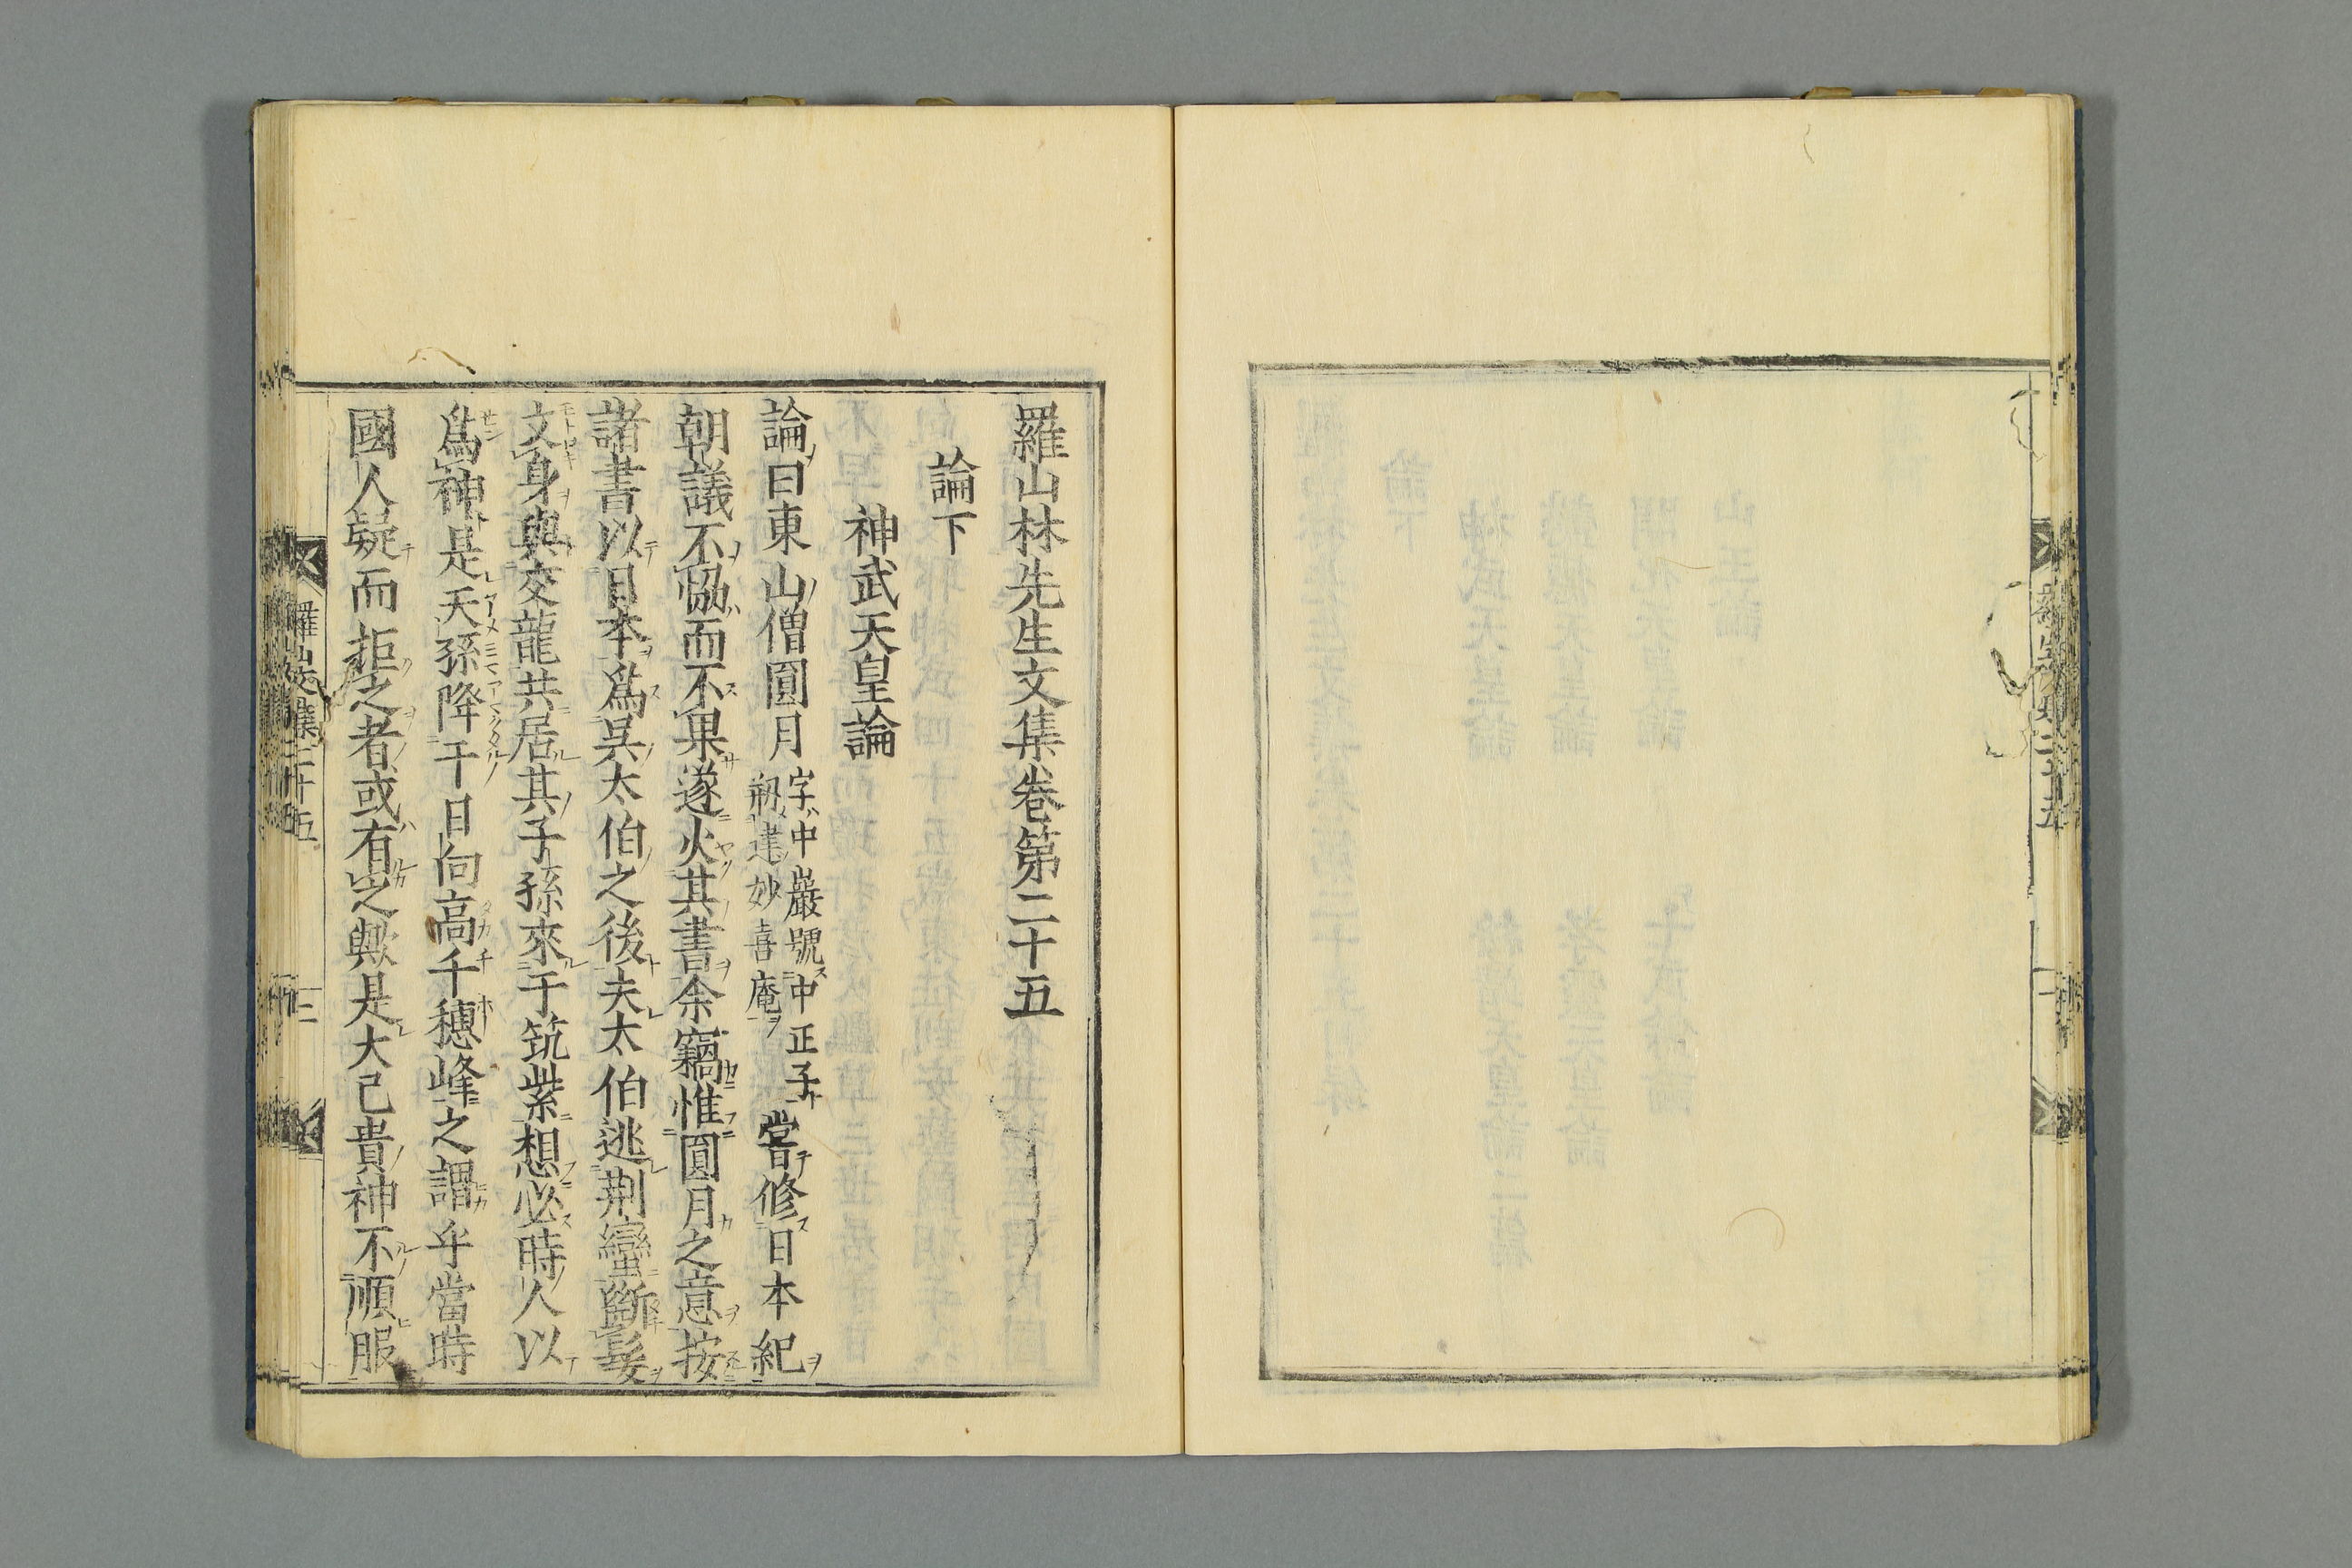 羅山林先生文集卷第二十五
論下
神武天皇論
論曰東山僧圓月字中巖號中正子
剏建妙喜庵嘗修日本紀
朝議不協而不果遂火其書余竊惟圓月之意按
諸書以日本爲吳太伯之後夫太伯逃荆蠻斷髮
文身與交龍共居其子孫來于筑紫想必時人以
爲神是天孫降于日向高千穗峰之謂乎當時
國人疑而拒之者或有之歟是大己貴神不順服
羅山文集二十五
二